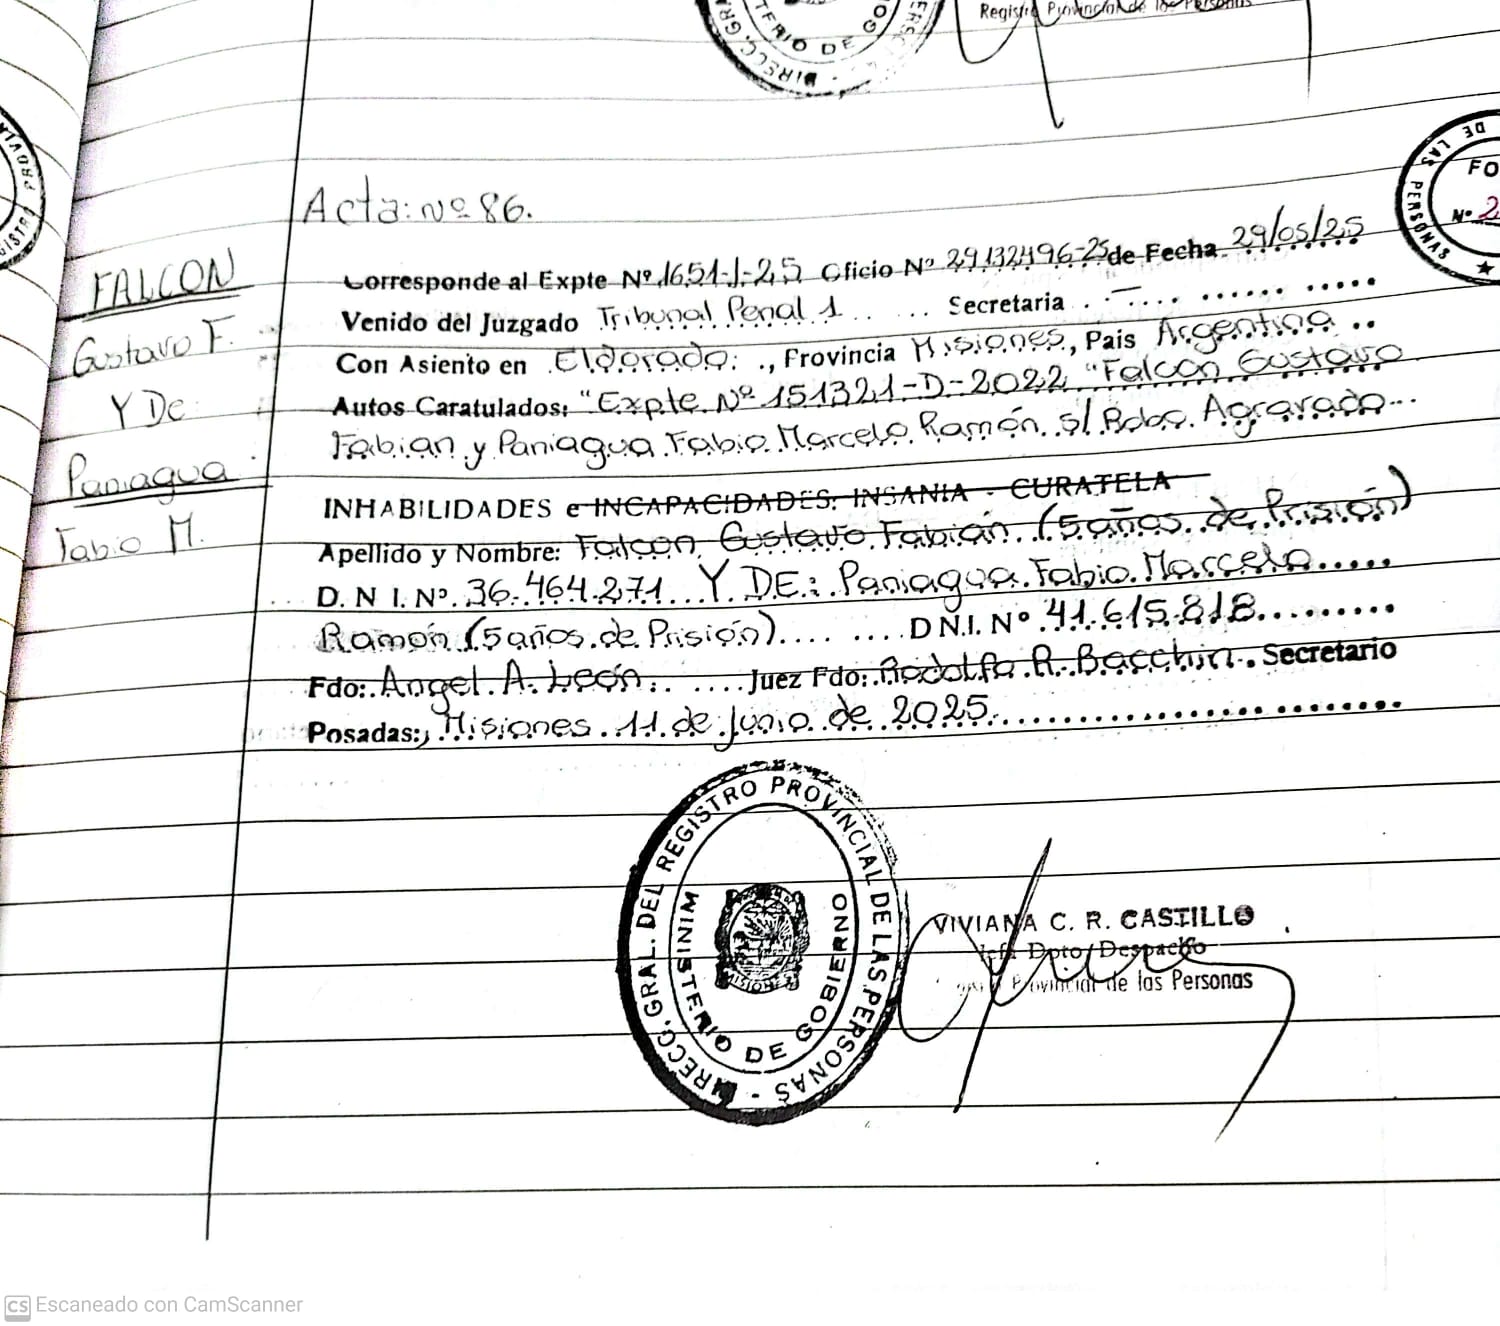 Registro Provincial de las Personas
Acta: Nº 86.
FALCON
Gustavo F.
Y De
Paniagua
Fabio M.
Corresponde al Expte Nº 1651-J-25 Oficio Nº 29132496-25 de Fecha 29/05/25
Venido del Juzgado Tribunal Penal 1 ..... Secretaria . .—.... ...... .....
Con Asiento en Eldorado: ., Provincia Misiones, Pais Argentina ..
Autos Caratulados: "Expte Nº 151321-D-2022 "Falcon Gustavo
Fabian y Paniagua Fabio Marcelo Ramón s/ Robo Agravado...
INHABILIDADES e INCAPACIDADES: INSANIA - CURATELA
Apellido y Nombre: Falcon Gustavo Fabián (5 años de Prisión)
D. N I. Nº 36.464.271... Y DE: Paniagua Fabio Marcelo.....
Ramón (5 años de Prisión).... .... D N.I. Nº 41.615.818.........
Fdo: Angel A. León. .... Juez Fdo: Rodolfo R. Bacchin. Secretario
Posadas:, Misiones 11 de junio de 2025.........................
DIRECC. GRAL. DEL REGISTRO PROVINCIAL DE LAS PERSONAS -
MINISTERIO DE GOBIERNO
MISIONES
VIVIANA C. R. CASTILLO
Jefa Dpto. Despacho
Provincial de las Personas
DE LAS PERSONAS
FO
Nº 2
CS Escaneado con CamScanner